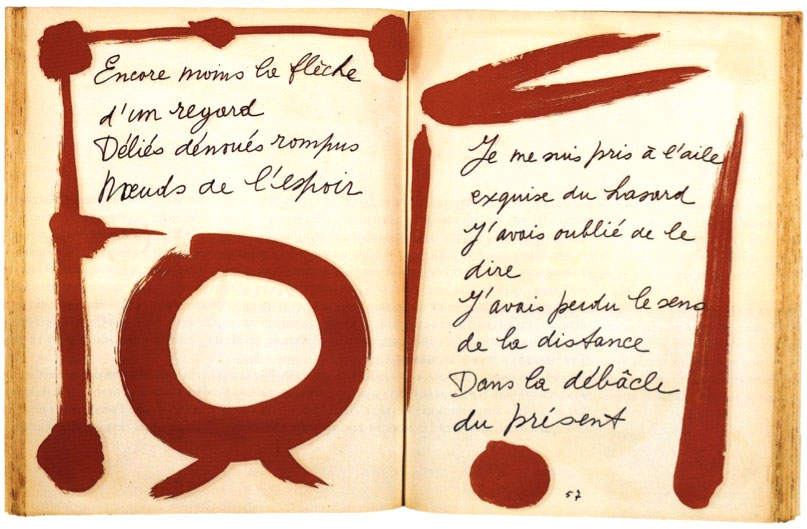 Encore moins la flèche
d'un regard
Déliés dénoués rompus
Nœuds de l'espoir
Je me suis pris à l'aile
exquise du hasard
J'avais oublié de le
dire
J'avais perdu le sens
de la distance
Dans la débâcle
du présent
57